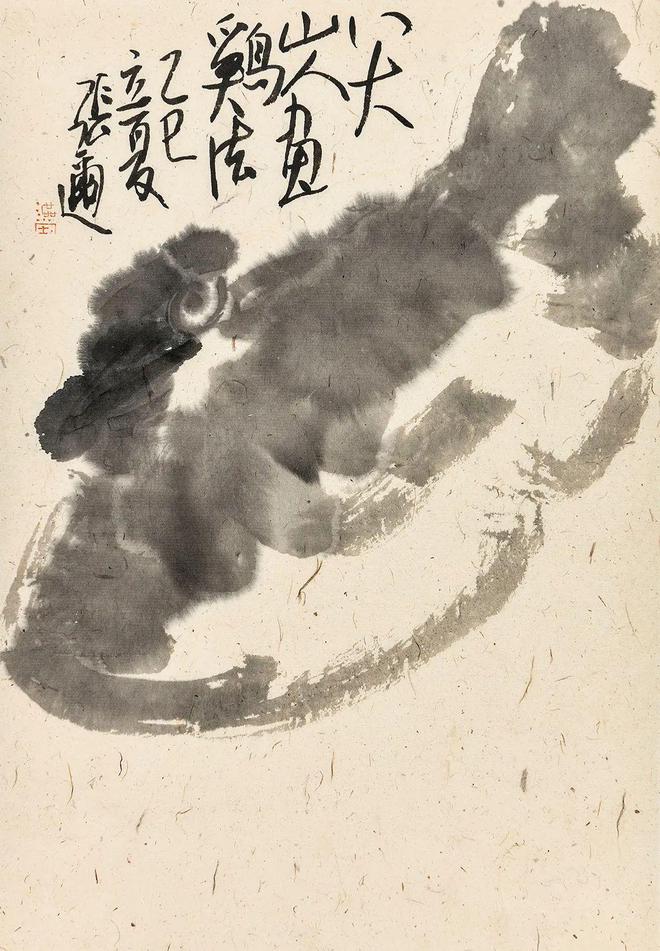 八大
山人畫
鷄法
乙巳
立夏
張邇